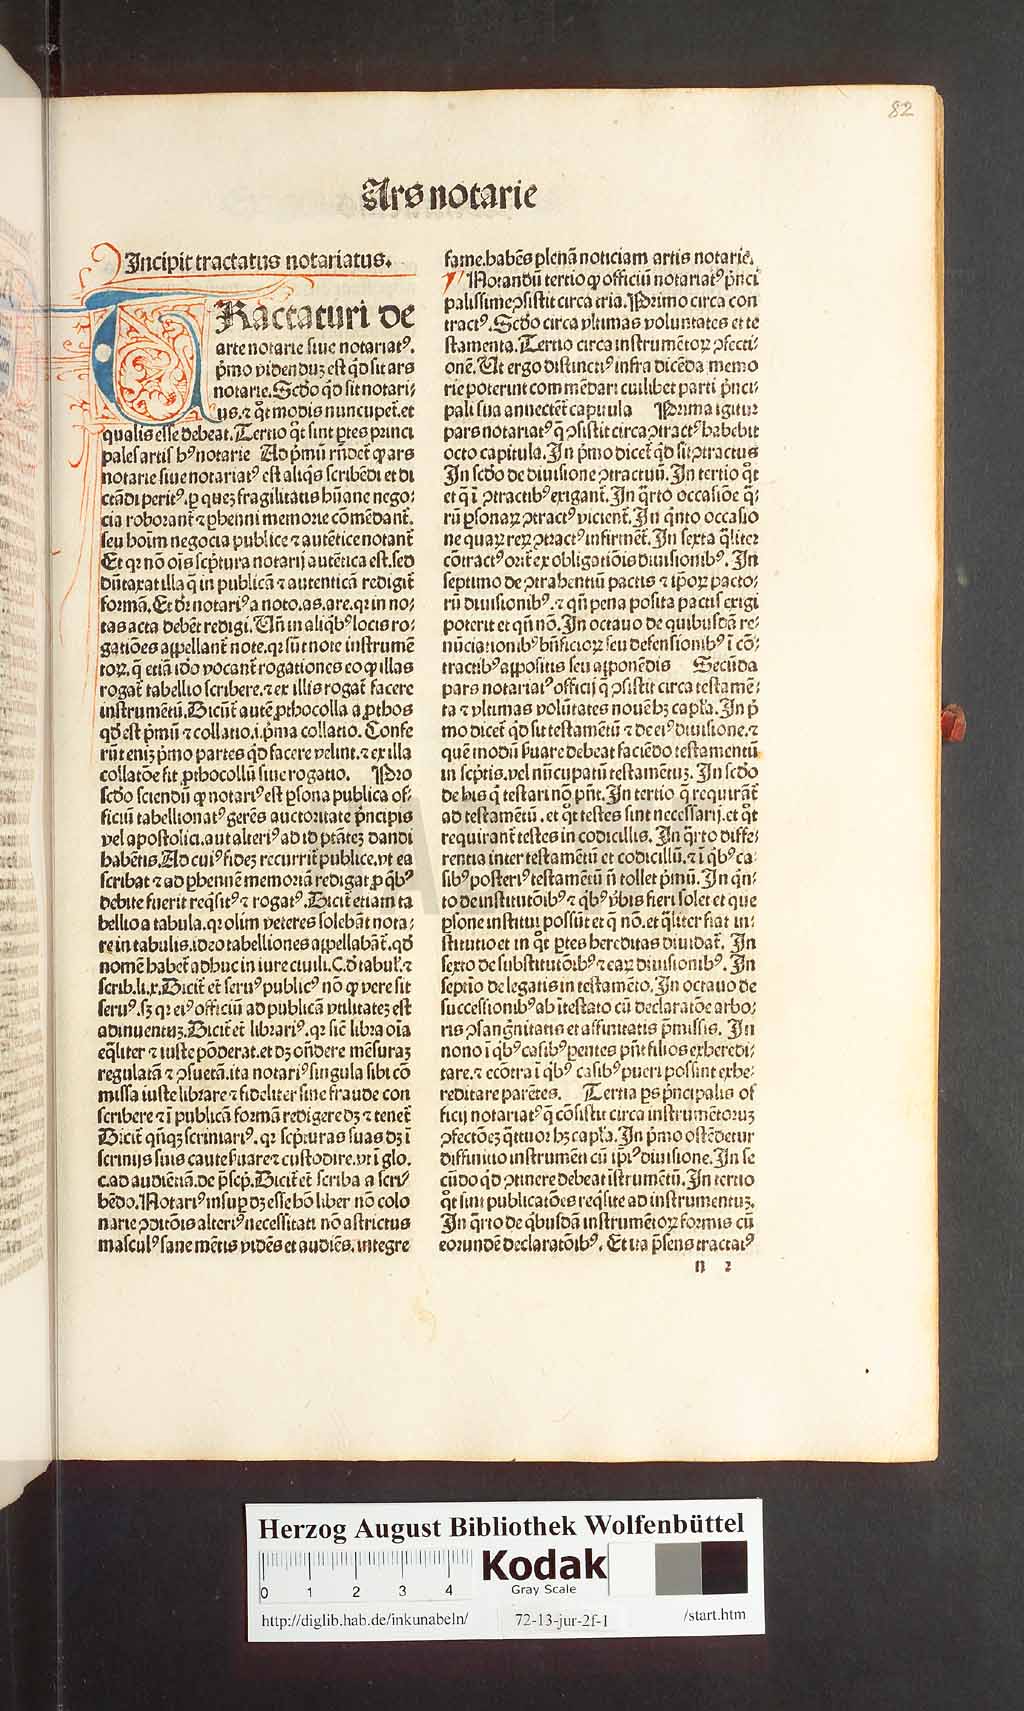 82
Ars notarie
Incipit tractatus notariatus.
TRactaturi de
arte notarie siue notariatꝰ.
p̄mo videnduꝫ est qͥd sit ars
notarie. Scd̓o qͥd sit notari⸗
us. ⁊ qͦt modis nuncupet̃. et
qualis esse debeat. Tertio qͦt sint ꝑtes princi
pales artis hꝰ notarie Ad p̓mū rñdet̃ ꝙ ars
notarie siue notariatꝰ est aliqͣ scribēdi et di
ctādi peritꝰ. ꝑ queꝫ fragilitatis hūane nego⸗
cia roborant̃ ⁊ ꝑhenni memorie cōmēdant̃.
seu hoim negocia publice ⁊ autētice notant̃
Et qꝛ nō oīs scp̄tura notarij autētica est. sed
dūtaxat illa q̄ in publicā ⁊ autenticā redigit̃
formā. Et dr̄ notariꝰ a noto. as. are. qꝛ in no⸗
tas acta debēt redigi. Vñ in aliqͥbꝰ locis ro⸗
gatiōes appellant̃ note. qꝛ sūt note instrumē
toꝝ. q̄ etiā id̓o vocant̃ rogationes eo ꝙ illas
rogat̃ tabellio scribere. ⁊ ex illis rogat̃ facere
instrumētū. Dicūt̃ autē ꝓthocolla a ꝓthos
qd̓ est p̓mū ⁊ collatio. i. p̓ma collatio. Confe
rūt eniꝫ p̓mo partes qͥd facere velint. ⁊ ex illa
collatōe fit ꝓthocollū siue rogatio. Pro
scd̓o sciendū ꝙ notariꝰ est ꝑsona publica of⸗
ficiū tabellionatꝰ gerēs auctoritate p̓ncipis
vel apostolici. aut alteriꝰ ad id ptāteꝫ dandi
habētis. Ad cuiꝰ fideꝫ recurrit̃ publice. vt ea
scribat ⁊ ad ꝑhennē memoriā redigat ꝓ qͥbꝰ
debite fuerit reqͥsitꝰ ⁊ rogatꝰ. Dicit̃ etiam ta
bellio a tabula. qꝛ olim veteres solebāt nota⸗
re in tabulis. ideo tabelliones appellabāt̃. qd̓
nomē habet̃ adhuc in iure ciuili. C. d̓ tabul̓. ⁊
scrib. li. x. Dicit̃ et̃ seruꝰ publicꝰ nō ꝙ vere sit
seruꝰ. sꝫ qꝛ eiꝰ officiū ad publicā vtilitateꝫ est
adinuentuꝫ. Dicit̃ et̃ librariꝰ. qꝛ sic̄ libra oīa
eq̄liter ⁊ iuste pōderat. et dꝫ oñdere mēsuraꝫ
regulatā ⁊ ↄsuetā. ita notariꝰ singula sibi cō
missa iuste librare ⁊ fideliter sine fraude con
scribere ⁊ ī publicā formā redigere dꝫ ⁊ tenet̃
Dicit̃ qn̄qꝫ scriniariꝰ. qꝛ scp̄turas suas dꝫ ī
scrinijs suis caute ẜuare ⁊ custodire. vt ī glo.
c. ad audiētiā. de p̄scp̄. Dicit̃ et̃ scriba a scri⸗
bēdo. Notariꝰ insuꝑ dꝫ esse hō liber nō colo
narie ↄditōis alteriꝰ necessitati nō astrictus
masculꝰ sane mētis vidēs et audiēs. integre
fame. habēs plenā noticiam artis notarie.
Notandū tertio ꝙ officiū notariatꝰ p̓nci
palissime ↄsistit circa tria. Primo circa con
tractꝰ. Scd̓o circa vltimas voluntates et te
stamenta. Tertio circa instrumētoꝝ ↄfecti⸗
onē. Vt ergo distinctiꝰ infra dicēda memo
rie poterint commēdari cuilibet parti p̓nci⸗
pali sua annectēt̃ capitula Prima igitur
pars notariatꝰ q̄ ↄsistit circa ↄtractꝰ habebit
octo capitula. In p̓mo dicet̃ qͥd sit ↄtractus
In scd̓o de diuisione ↄtractuū. In tertio qͦt
et q̄ ī ↄtractibꝰ exigant̃. In qͣrto occasiōe q̄⸗
rū ꝑsonaꝝ ↄtractꝰ vicient̃. In qͥnto occasio
ne quaꝝ reꝝ ↄtractꝰ infirmēt̃. In sexta qͣliter
cōtractꝰ orit̃ ex obligatiōis diuisionibꝰ. In
septimo de ↄtrahentiū pactis ⁊ ip̄oꝝ pacto⸗
rū diuisionibꝰ. ⁊ qn̄ pena posita pactis exigi
poterit et qn̄ nō. In octauo de quibusdā re⸗
nūciationibꝰ bn̄ficioꝝ seu defensionibꝰ ī cō⸗
tractibꝰ appositis seu apponēdis Secūda
pars notariatꝰ officij q̄ ↄsistit circa testamē⸗
ta ⁊ vltimas volūtates nouē hꝫ capl̓a. In p̓
mo dicet̃ qͥd sit testamētū ⁊ de eiꝰ diuisione. ⁊
quē modū ẜuare debeat faciēdo testamentū
in scp̄tis. vel nūcupatiū testamētuꝫ. In scd̓o
de his q̄ testari nō pn̄t. In tertio q̄ requirāt̃
ad testamētū. et qͦt testes sint necessarij. et qͦt
requirant̃ testes in codicillis. In qͣrto diffe⸗
rentia inter testamētū et codicillū. ⁊ ī qͥbꝰ ca⸗
sibꝰ posteriꝰ testamētū n̄ tollet p̓mū. In qͥn⸗
to de institutōibꝰ ⁊ qͥbꝰ v̓bis fieri solet et que
ꝑsone institui possūt et q̄ nō. et qͣliter fiat in⸗
stitutio et in qͦt ꝑtes hereditas diuidat̃. In
sexto de substitutōibꝰ ⁊ eaꝝ diuisionibꝰ. In
septio de legatis in testamēto. In octauo de
successionibꝰ ab ītestato cū declaratōe arbo⸗
ris ↄsangͥnitatis et affinitatis p̄missis. In
nono ī qͥbꝰ casibꝰ pentes pn̄t filios exheredi⸗
tare. ⁊ ecōtra ī qͥbꝰ casibꝰ pueri possint exhe⸗
reditare parētes. Tertia ps̄ p̓ncipalis of
ficij notariatꝰ q̄ cōsistit circa instrumētoruꝫ
ↄfectōeꝫ qͣttuor hꝫ capl̓a. In p̓mo ostēdetur
diffinitio instrumēti cū ip̄iꝰ diuisione. In se
cūdo qͥd ↄtinere debeat īstrumētū. In tertio
qͦt sint publicatōes reqͥsite ad instrumentuꝫ.
In qͣrto de qͥbusdā instrumētoꝝ formis cū
eorundē declaratōibꝰ. Et ita p̄sens tractatꝰ
n 2
Herzog August Bibliothek Wolfenbüttel
0 1 2 3 4
Kodak
Gray Scale
http://diglib.hab.de/inkunabeln/ 72-13-jur-2f-1 /start.htm